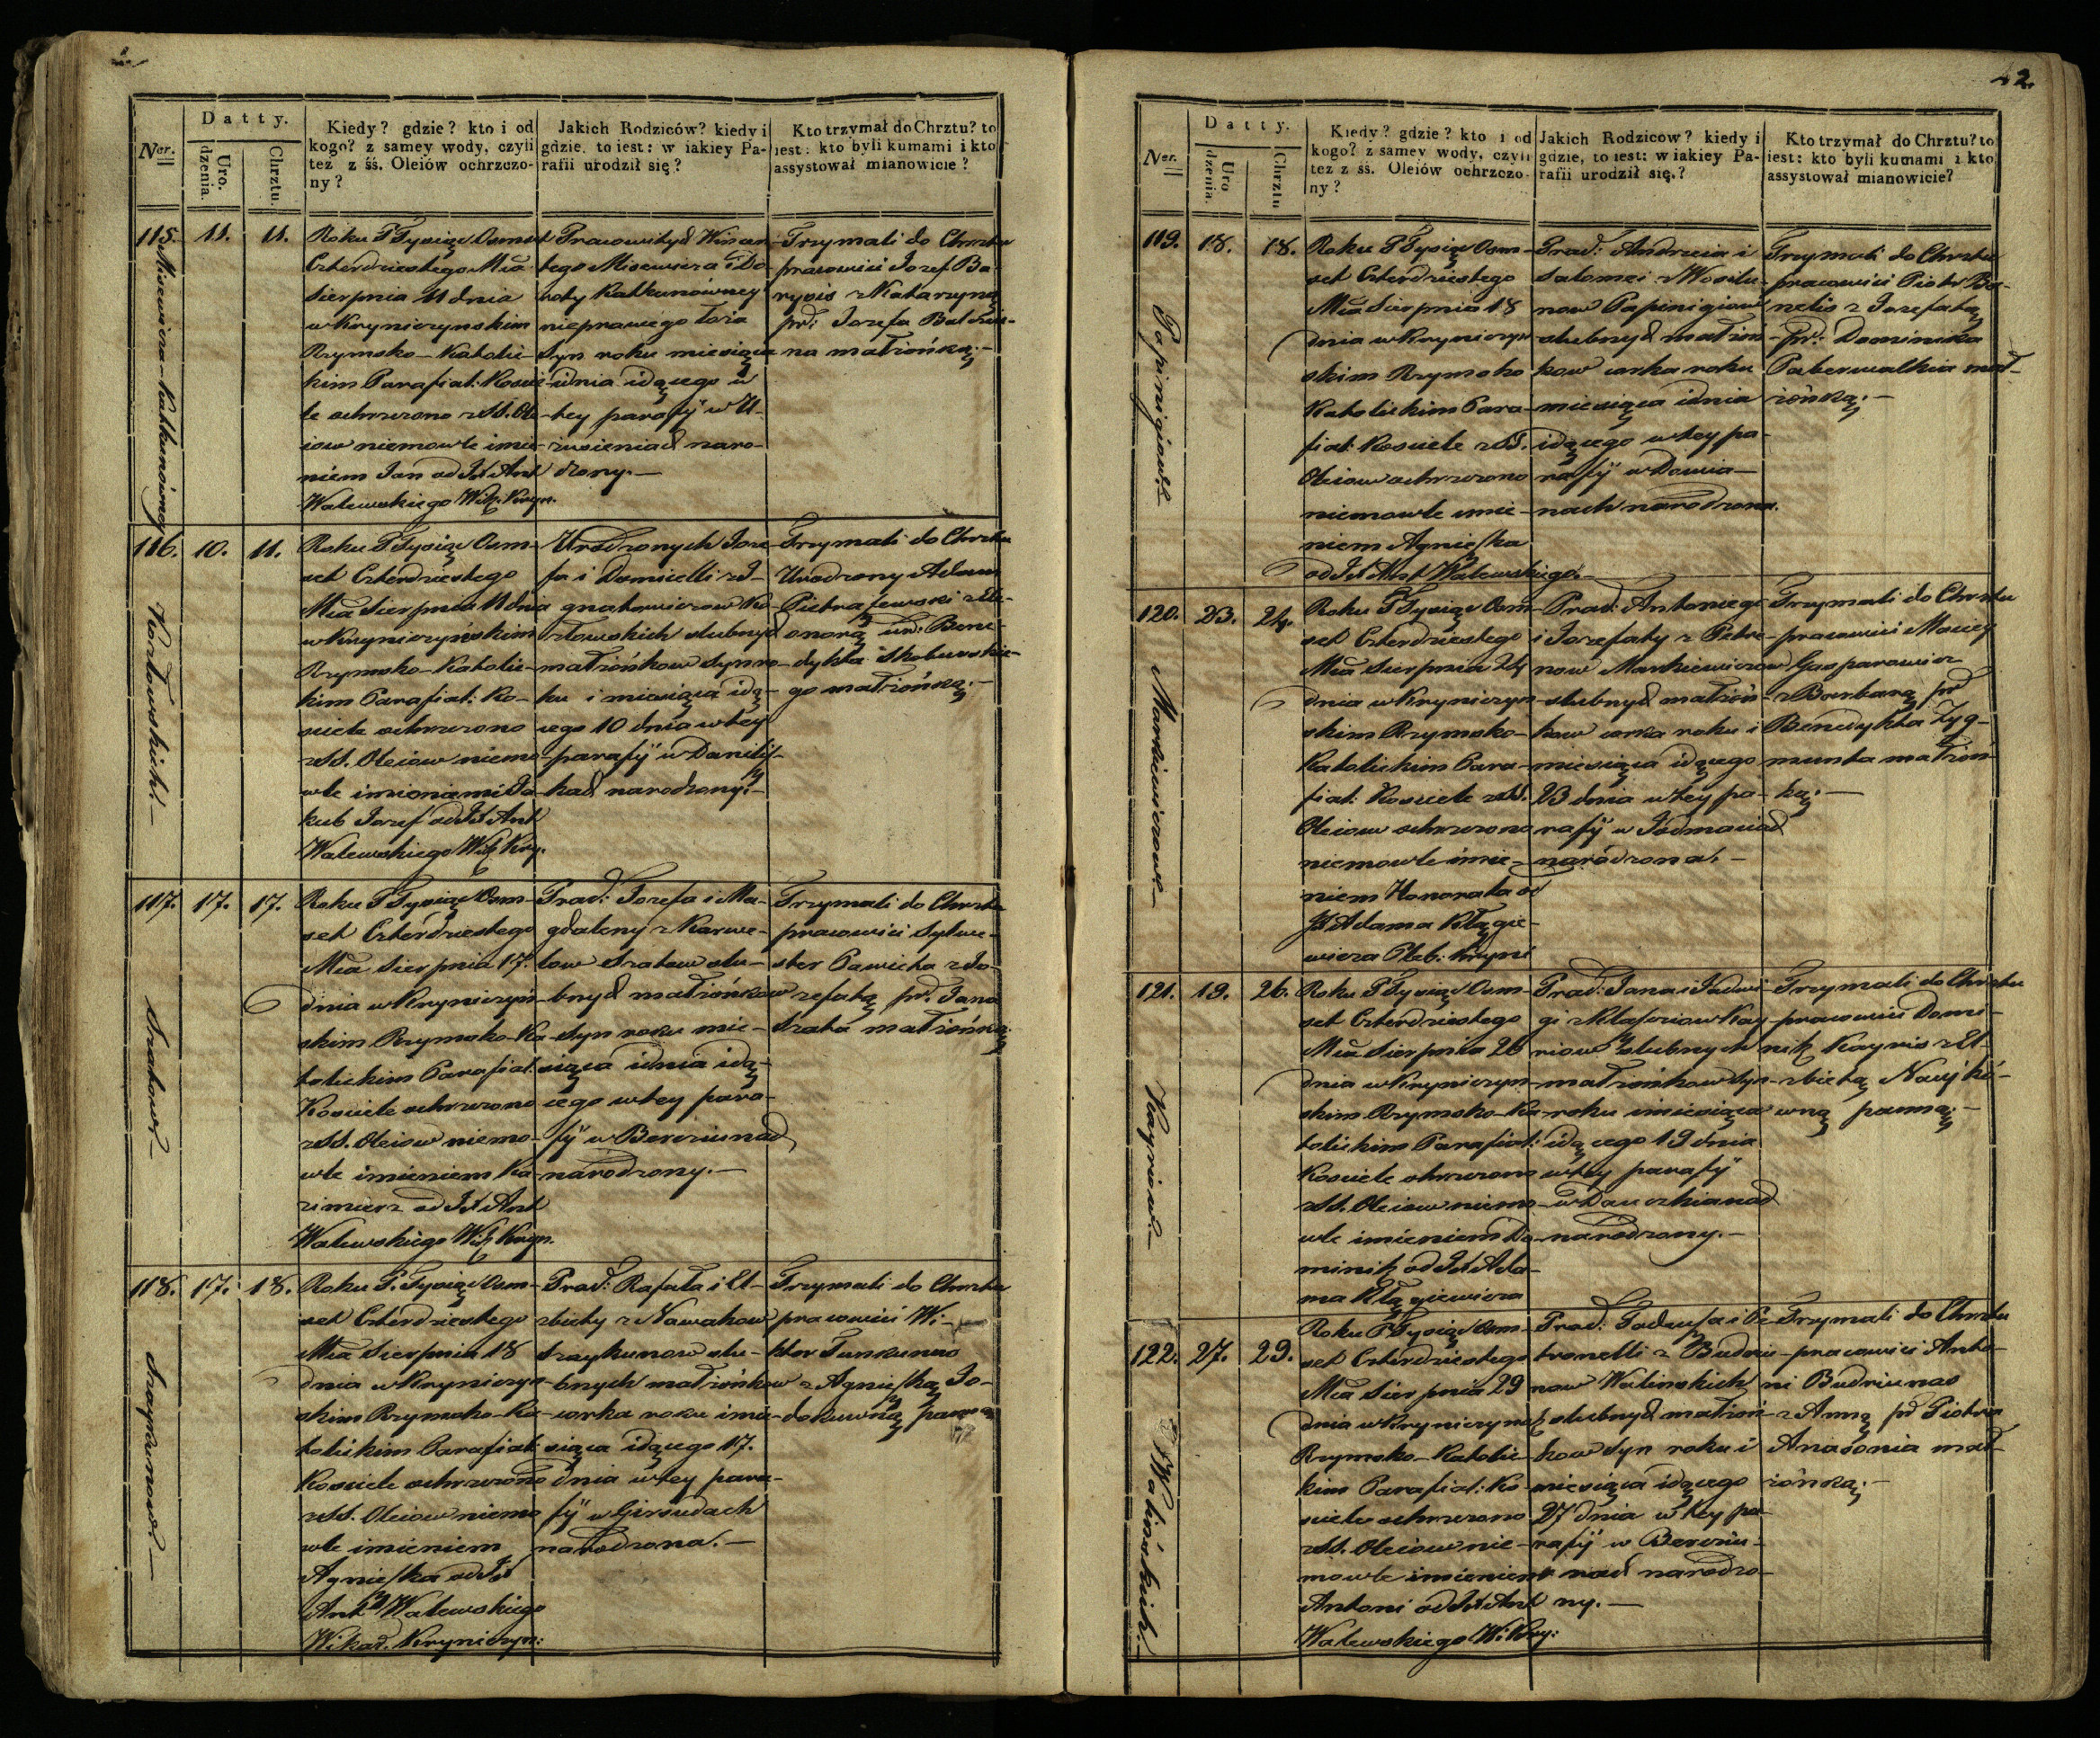 Datty.
Ner.
Uro.
dzenia.
Chrztu.
Kiedy? gdzie? kto i od
kogo? z samey wody, czyli
tez z śś. Oleiów ochrzczo-
ny?
Jakich Rodziców? kiedy i
gdzie, to iest: w iakiey Pa-
rafii urodził się?
Kto trzymał do Chrztu? to
iest: kto byli kumami i kto
assystował mianowicie?
115.
Misewicza-Kałkunówney
11.
11.
Roku Tysiąc Osmset
Czterdziestego Mca
Sierpnia 11 dnia
w Kryniczynskim
Rzymsko-Katolic-
kim Parafial: Koście-
le ochrzczono z SS. Ole-
iow niemowle imie-
niem Jan od Jd Ant
Walewskiego Wik. Kryn.
Pracowitych Wincen-
tego Misewicza i Do-
roty Kałkunówney
nieprawego łoża
Syn roku miesiąca
i dnia idącego w
tey parafÿ w U-
zusieniach naro-
dzony.
Trzymali do Chrztu
pracowici Jozef Ba-
rysis z Katarzyną
pr: Jozefa Baltru-
na małżonką.
116.
Kozłowskich.
10.
11.
Roku Tysiąc Osm-
set Czterdziestego
Mca Sierpnia 11 dnia
w Krynicznyńskim
Rzymsko-Katolic-
kim Parafial: Ko-
sciele ochrzczono
z SS. Oleiow niemo-
wle imionami Ja-
kub Jozef od Jd Ant
Walewskiego Wik Kry.
Urodzonych Joze-
fa i Domicelli z I-
gnatowiczow Ko-
złowskich slubnych
małżonkow Syn ro-
ku i miesiąca idą-
cego 10 dnia w tey
parafÿ w Daniliſ-
kach narodzony.
Trzymali do Chrztu
Urodzony Adam
Pietraſzewski z Ele-
onorą Ur: Bene-
dykta Skoburskie-
go małżonką.
117.
Szatow
17.
17.
Roku Tysiąc Osm-
set Czterdziestego
Mca Sierpnia 17.
dnia w Krynicżyń-
skim Rzymsko-Ka-
tolickim Parafial.
Kosciele ochrzczono
z SS. Oleiow niemo-
wle imieniem Ka-
zimierz od Jd Ant
Walewskiego Wik Kryn.
Prac: Jozefa i Ma-
gdaleny z Karwe-
low Szatow slu-
bnych małżonkow
Syn roku mie-
siąca i dnia idą-
cego w tey para-
fÿ w Berciunach
narodzony.
Trzymali do Chrztu
pracowici Sylwe-
ster Pawieka z Jo-
zefatą pr. Jana
Szata małżonką
118.
Szaykunow
17.
18.
Roku Tysiąc Osm-
set Czterdziestego
Mca Sierpnia 18
dnia w Kryniczyn-
skim Rzymsko-Ka-
tolickim Parafial:
Kosciele ochrzczono
z SS. Oleiow niemo-
wle imieniem
Agnieſzka od Jd
Ant Walewskiego
Wikar. Kryniczyn:
Prac: Rafała i El-
zbiety z Nawakow
Szaykunow slu-
bnych małżonkow
corka roku i mie-
siąca idącego 17.
dnia w tey para-
fÿ w Girsudach
narodzona.
Trzymali do Chrztu
pracowici Wi-
ktor Tunkunas
z Agnieſzką Jo-
dokuwną panną
2.
Datty.
Ner.
Uro
dzenia.
Chrztu
Kiedy? gdzie? kto i od
kogo? z samey wody, czyli
tez z śś. Oleiów ochrzczo-
ny?
Jakich Rodzicow? kiedy i
gdzie, to iest: w iakiey Pa-
rafii urodził się.?
Kto trzymał do Chrztu? to
iest: kto byli kumami i kto
assystował mianowicie?
119.
Papinigiow
18.
18.
Roku Tysiąc Osm-
set Czterdziestego
Mca Sierpnia 18
dnia w Kryniczyn-
skim Rzymsko
Katolickim Para-
fial: Kosciele z SS.
Oleiow ochrzczono
niemowle imie-
niem Agnieſzka
od Jd Ant Walewskiego.
Prac: Andrzeia i
Salomei z Wosilu-
now Papinigiow
slubnych małżon-
kow corka roku
miesiąca i dnia
idącego w tey pa-
rafÿ w Domia-
nach narodzona.
Trzymali do Chrztu
pracowici Piotr Ba-
nelis z Jozefatą
pr: Dominika
Paberwalkia mał-
żonką.
120.
Markiewiczow
23.
24.
Roku Tysiąc Osm-
set Czterdziestego
Mca Sierpnia 24
dnia w Kryniczyn-
skim Rzymsko-
Katolickim Para-
fial: Kosciele z SS.
Oleiow ochrzczono
niemowle imie-
niem Honorata od
Jd Adama Kłągie-
wicza Pleb: Kryni
Prac: Antoniego
i Jozefaty z Petro-
now Markiewiczow
slubnych małżon-
kow corka roku i
miesiąca idącego
23 dnia w tey pa-
rafÿ w Jodmaniach
narodzona.
Trzymali do Chrztu
pracowici Maciey
Gasparowicz
z Barbarą pr
Benedykta Zyg-
munta małżon-
ką.
121.
Kayriow
19.
26.
Roku Tysiąc Osm-
set Czterdziestego
Mca Sierpnia 26
dnia w Kryniczyn-
skim Rzymsko-Ka-
tolickim Parafial:
Kosciele ochrzczono
z SS. Oleiow niemo-
wle imieniem Do-
minik od Jd Ada-
ma Kłągiewicza
Prac: Jana i Jadwi-
gi z Klaſoriow Kay-
riow slubnych
małżonkow Syn
roku i miesiąca
idącego 19 dnia
w tey parafÿ
w Dauczkianach
narodzony.
Trzymali do Chrztu
pracowici Domi-
nik Kayris z El-
zbietą Nawikó-
wną panną.
122.
Walińskich
27.
29.
Roku Tysiąc Osm-
set Czterdziestego
Mca Sierpnia 29
dnia w Kryniczynsk
Rzymsko-Katolic-
kim Parafial: Ko-
sciele ochrzczono
z SS. Oleiow nie-
mowle imieniem
Antoni od Jd Ant
Walewskiego W. Kry:
Prac: Tadeuſza i Pe-
tronelli z Budriu-
now Walinskich
slubnych małżon-
kow Syn roku i
miesiąca idącego
27 dnia w tey pa-
rafÿ w Berciu-
nach narodzo-
ny.
Trzymali do Chrztu
pracowici Anto-
ni Budriunas
z Anną pr Piotra
Anasonia mał-
żonką.